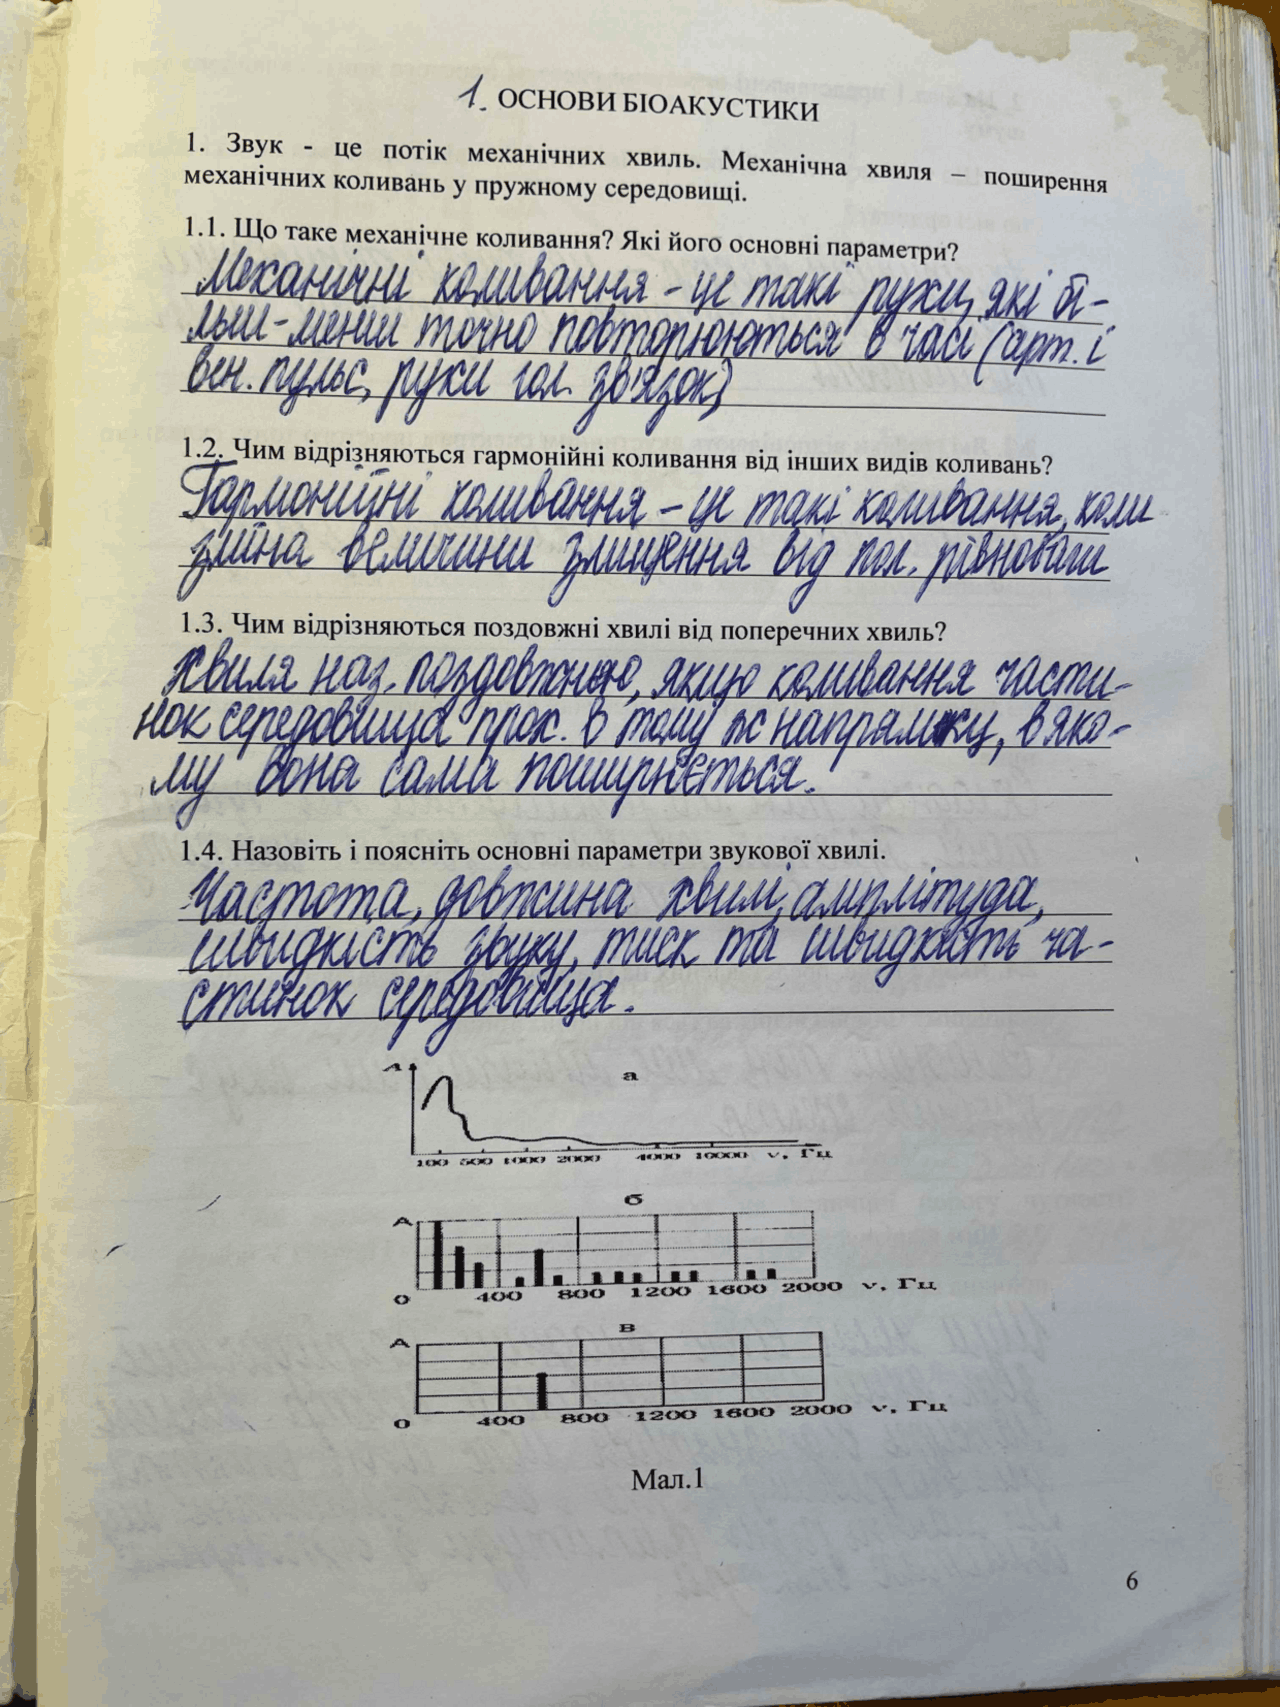 1. ОСНОВИ БІОАКУСТИКИ
1. Звук - це потік механічних хвиль. Механічна хвиля – поширення
механічних коливань у пружному середовищі.
1.1. Що таке механічне коливання? Які його основні параметри?
Механічні коливання - це такі рухи, які бі-
льш-менш точно повторюються в часі (арт. і
вен. пульс, рухи гол. зв'язок)
1.2. Чим відрізняються гармонійні коливання від інших видів коливань?
Гармонійні коливання - це такі коливання, коли
зміна величини зміщення від пол. рівноваги
1.3. Чим відрізняються поздовжні хвилі від поперечних хвиль?
Хвиля наз. поздовжною, якщо коливання части-
нок середовища прох. в тому ж напрямку, в яко-
му вона сама поширюється.
1.4. Назовіть і поясніть основні параметри звукової хвилі.
Частота, довжина хвилі, амплітуда,
швидкість звуку, тиск та швидкість ча-
стинок середовища.
А а
100 500 1000 2000 4000 10000 ν, Гц
б
А
0 400 800 1200 1600 2000 ν, Гц
в
А
0 400 800 1200 1600 2000 ν, Гц
Мал.1
6